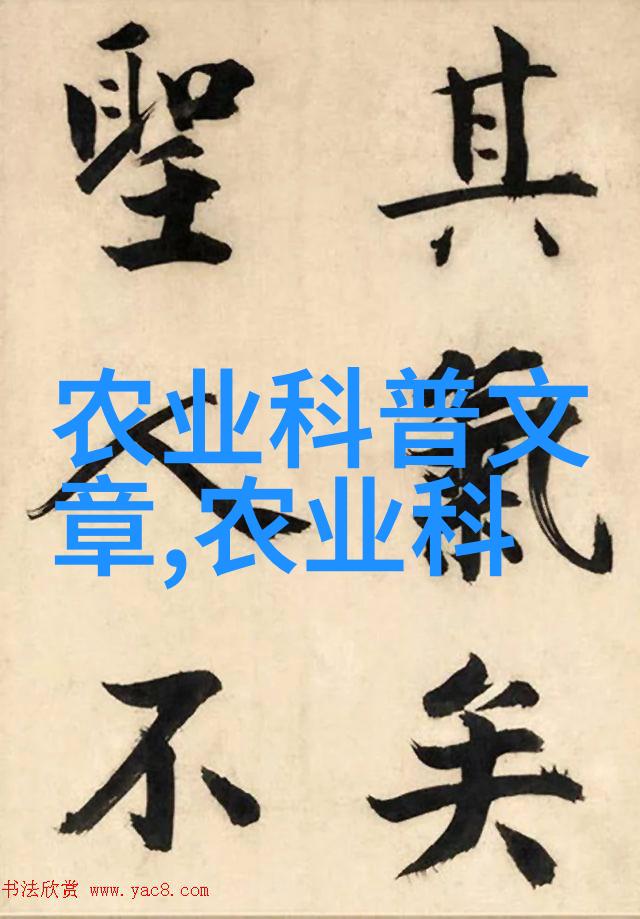 其氣矣
聖人不
农业科普文
章,农业科
书法欣赏 www.yac8.com